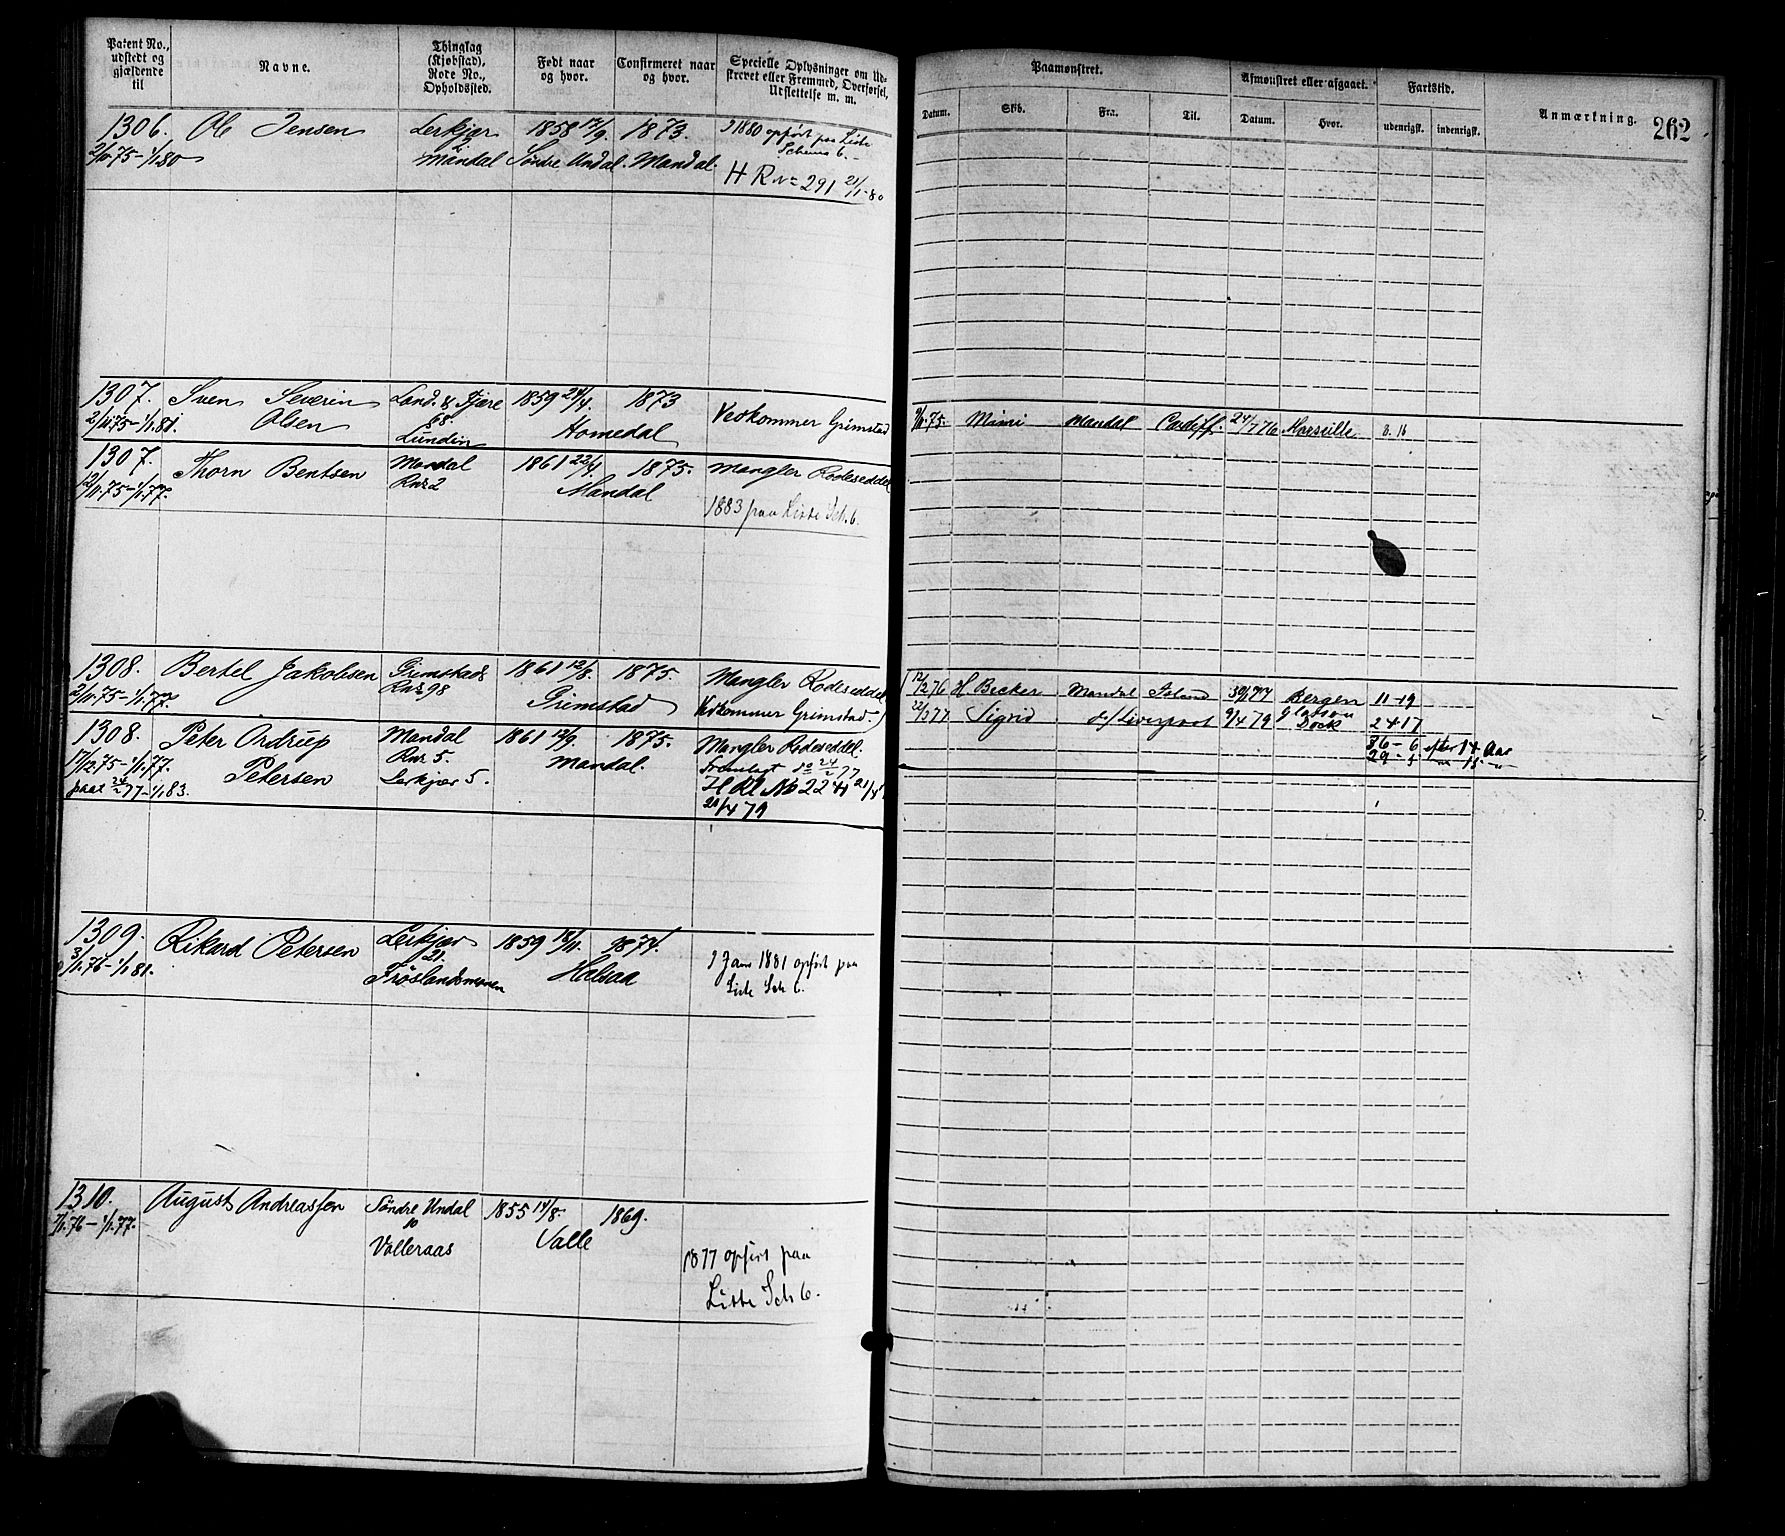 Patent No., udstedt og gjældende til
Navne.
Thinglag (Kjøbstad), Rode No., Opholdssted.
Født naar og hvor.
Confirmeret naar og hvor.
Specielle Oplysninger om Udskrevet eller Fremmed, Overførsel, Udslettelse m. m.
Paamønstret.
Datum.
Skib.
Fra.
Til.
Afmønstret eller afgaaet.
Datum.
Hvor.
Fartstid.
udenrigsk.
indenrigsk.
Anmærkning.
262
1306. Ole Jensen Lerkjær 1858 17/9. 1873. I 1880 opført paa Liste
Schema 6.
2/11.75-1/1.80 Mandal Søndre Undal. Mandal.
H R No 291 21/1-80
1307. Sven Severin Land. & Fjære 1859 24/4. 1873
2/11.75-1/1.81. Olsen 68. Homedal Vedkommer Grimstad
Lunden
9/11.75. Mimi Mandal Cardiff. 24/7 76 Marseille 8. 16
1307. Thorn Bentsen Mandal 1861 22/4 1875. Mangler Rodeseddel
12/11.75-1/1.77. Rnr 2 Mandal
1883 paa Liste Sch. 6.
1308. Bertel Jakobsen Grimstad 1861 12/8. 1875. Mangler Rodeseddel
2/11.75-1/1.77 Rnr 98 Grimstad Vedkommer Grimstad.
12/2 76 H Becker Mandal Island Bergen 11-19
22/2 77 Sigrid Liverpool 9/4 79 Dock 24 17
36-6 efter 14 Aar
29-5 " 15 "
1308. Peter Ordrup Mandal 1861 12/9. 1875. Mangler Rodeseddel.
17/12.75-1/1.77. Petersen Rnr 5. Mandal. Fremlagt 24/2 77
paat 24/2 77-1/1 83. Lerkjær 5. H Rl No 224
21/4 79
1309. Rikard Petersen Lerkjær 1859 18/11. 1874.
3/1.76-1/1.81. 21. Halsaa I Jan 1881 opført paa
Frøslandsmonen Liste Sch 6.
1310. August Andreassen Søndre Undal 1855 14/8. 1869.
7/1.76-1/1.77. 10 Valle
Valleraas 1877 opført paa
Liste Sch 6.